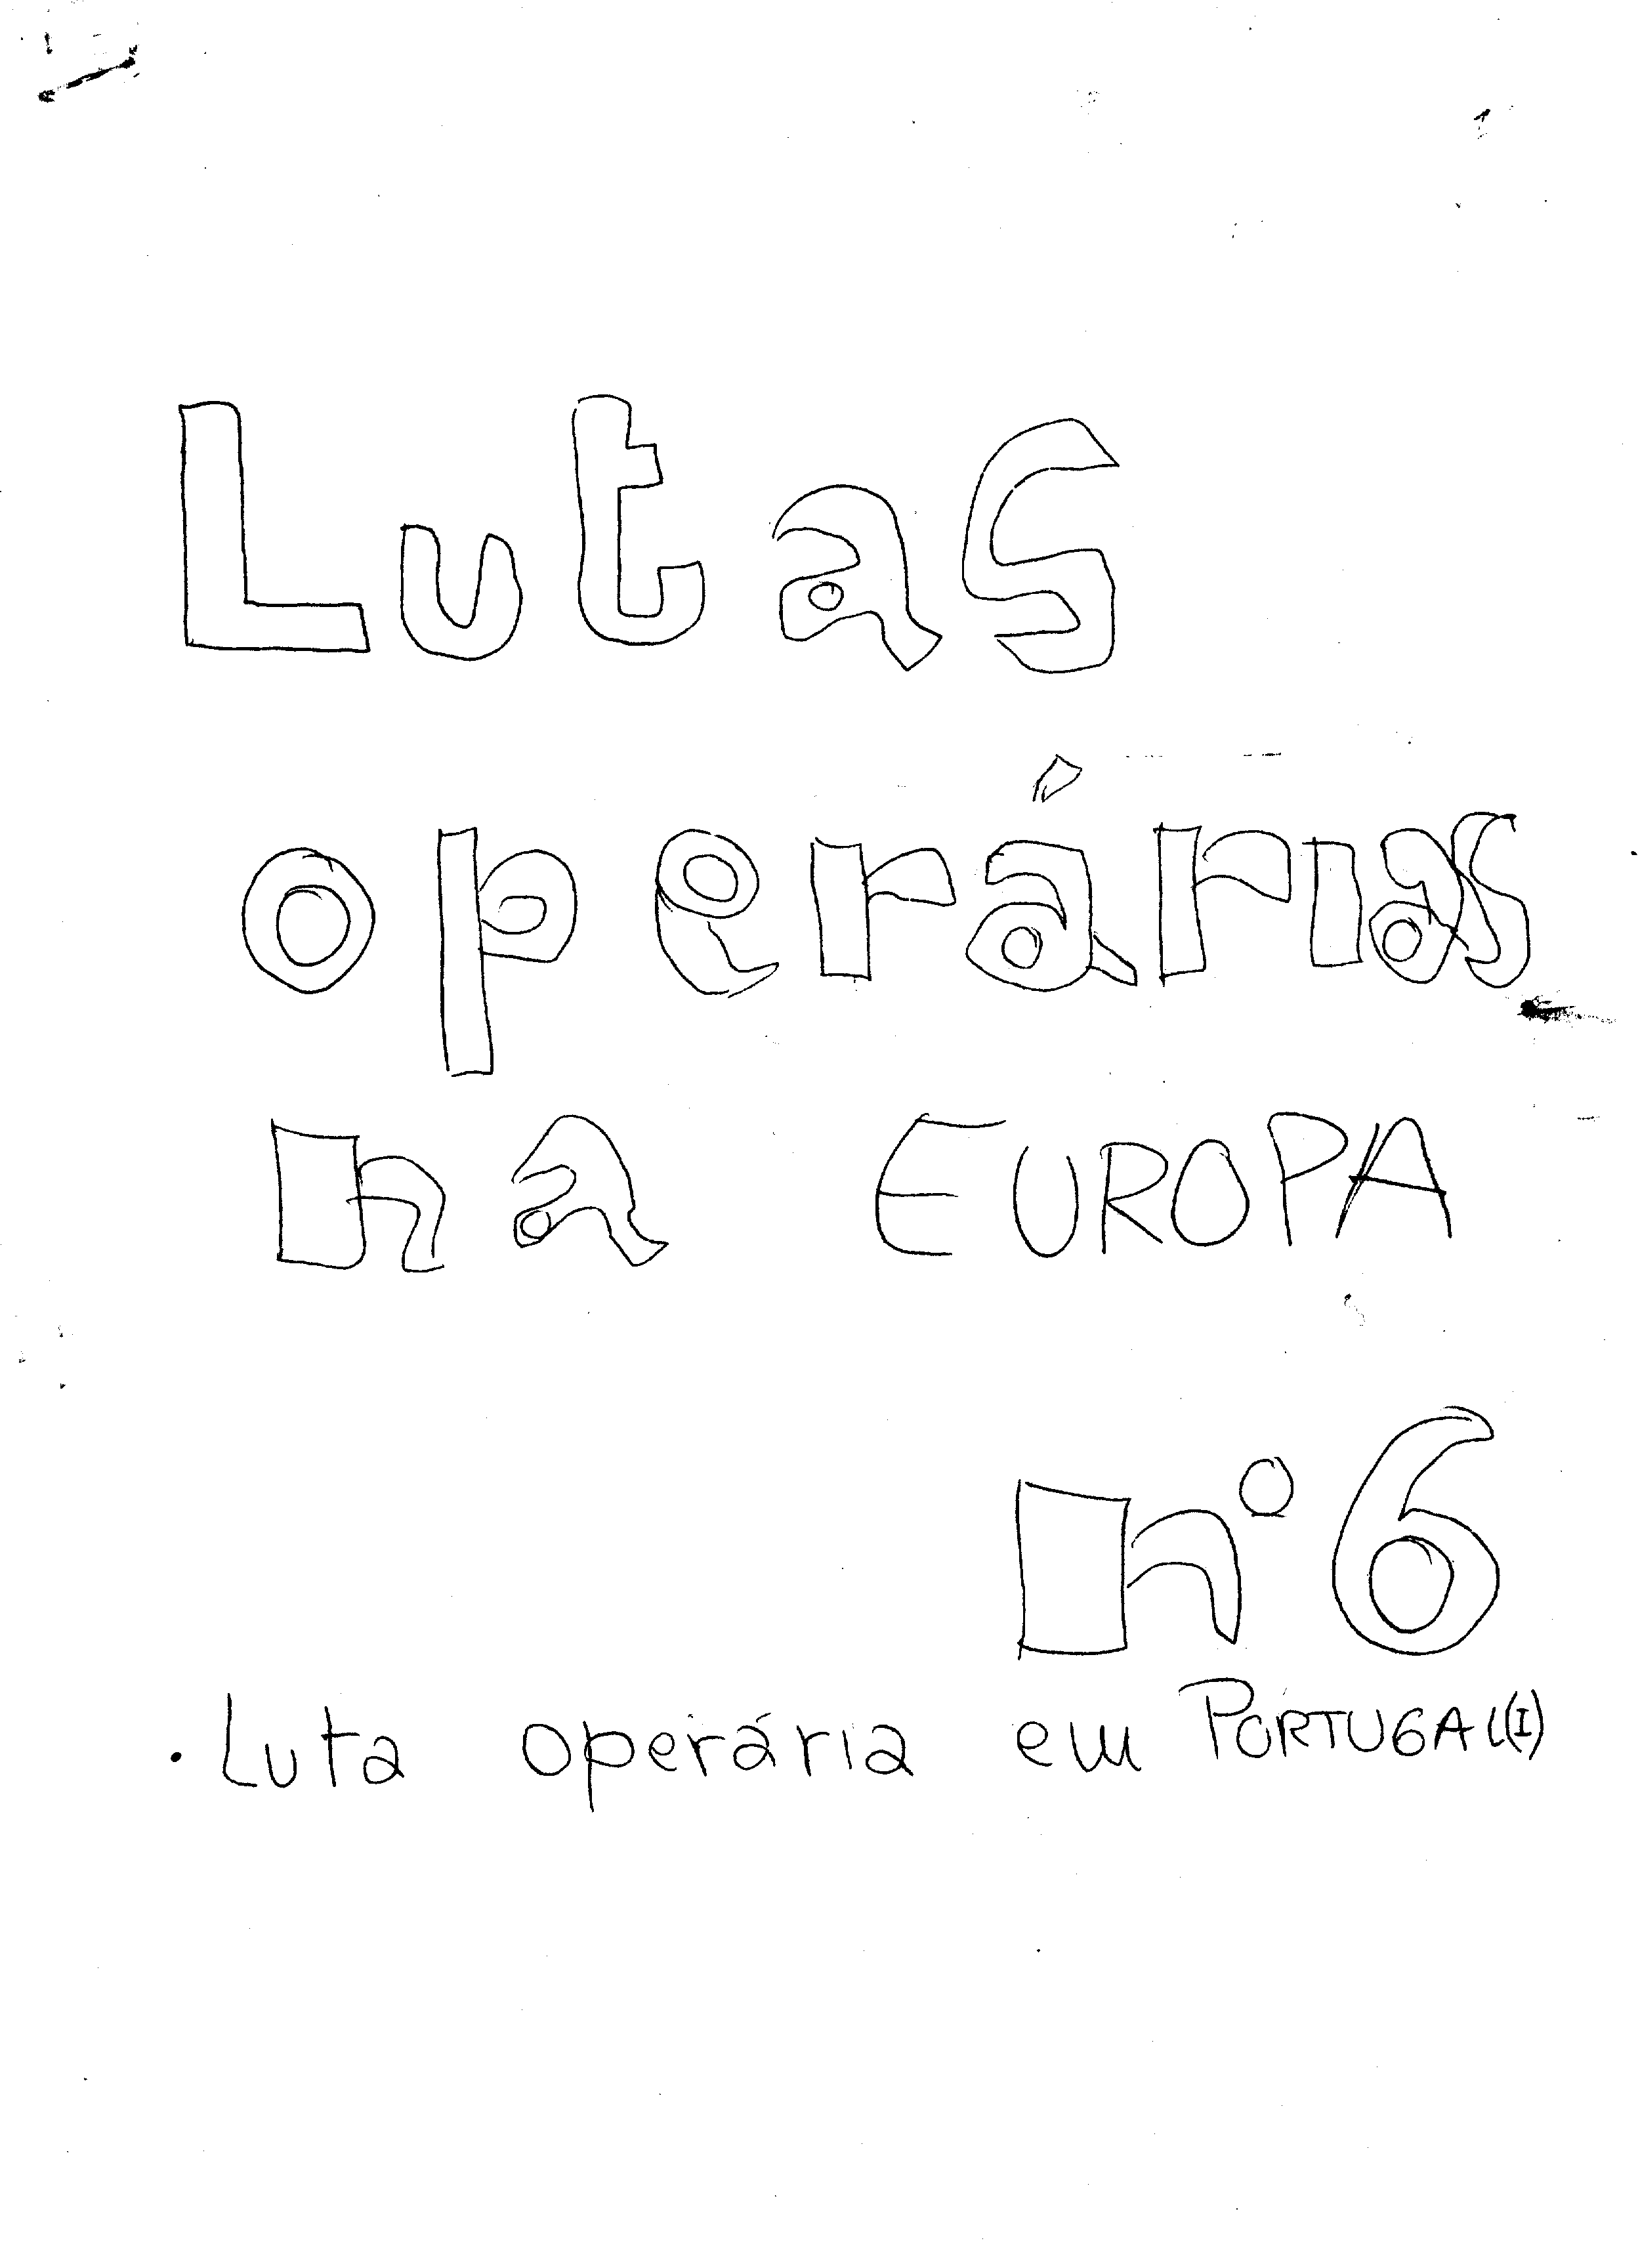 Lutas
operárias
na EUROPA
nº 6
. Luta operária em PORTUGAL (I)